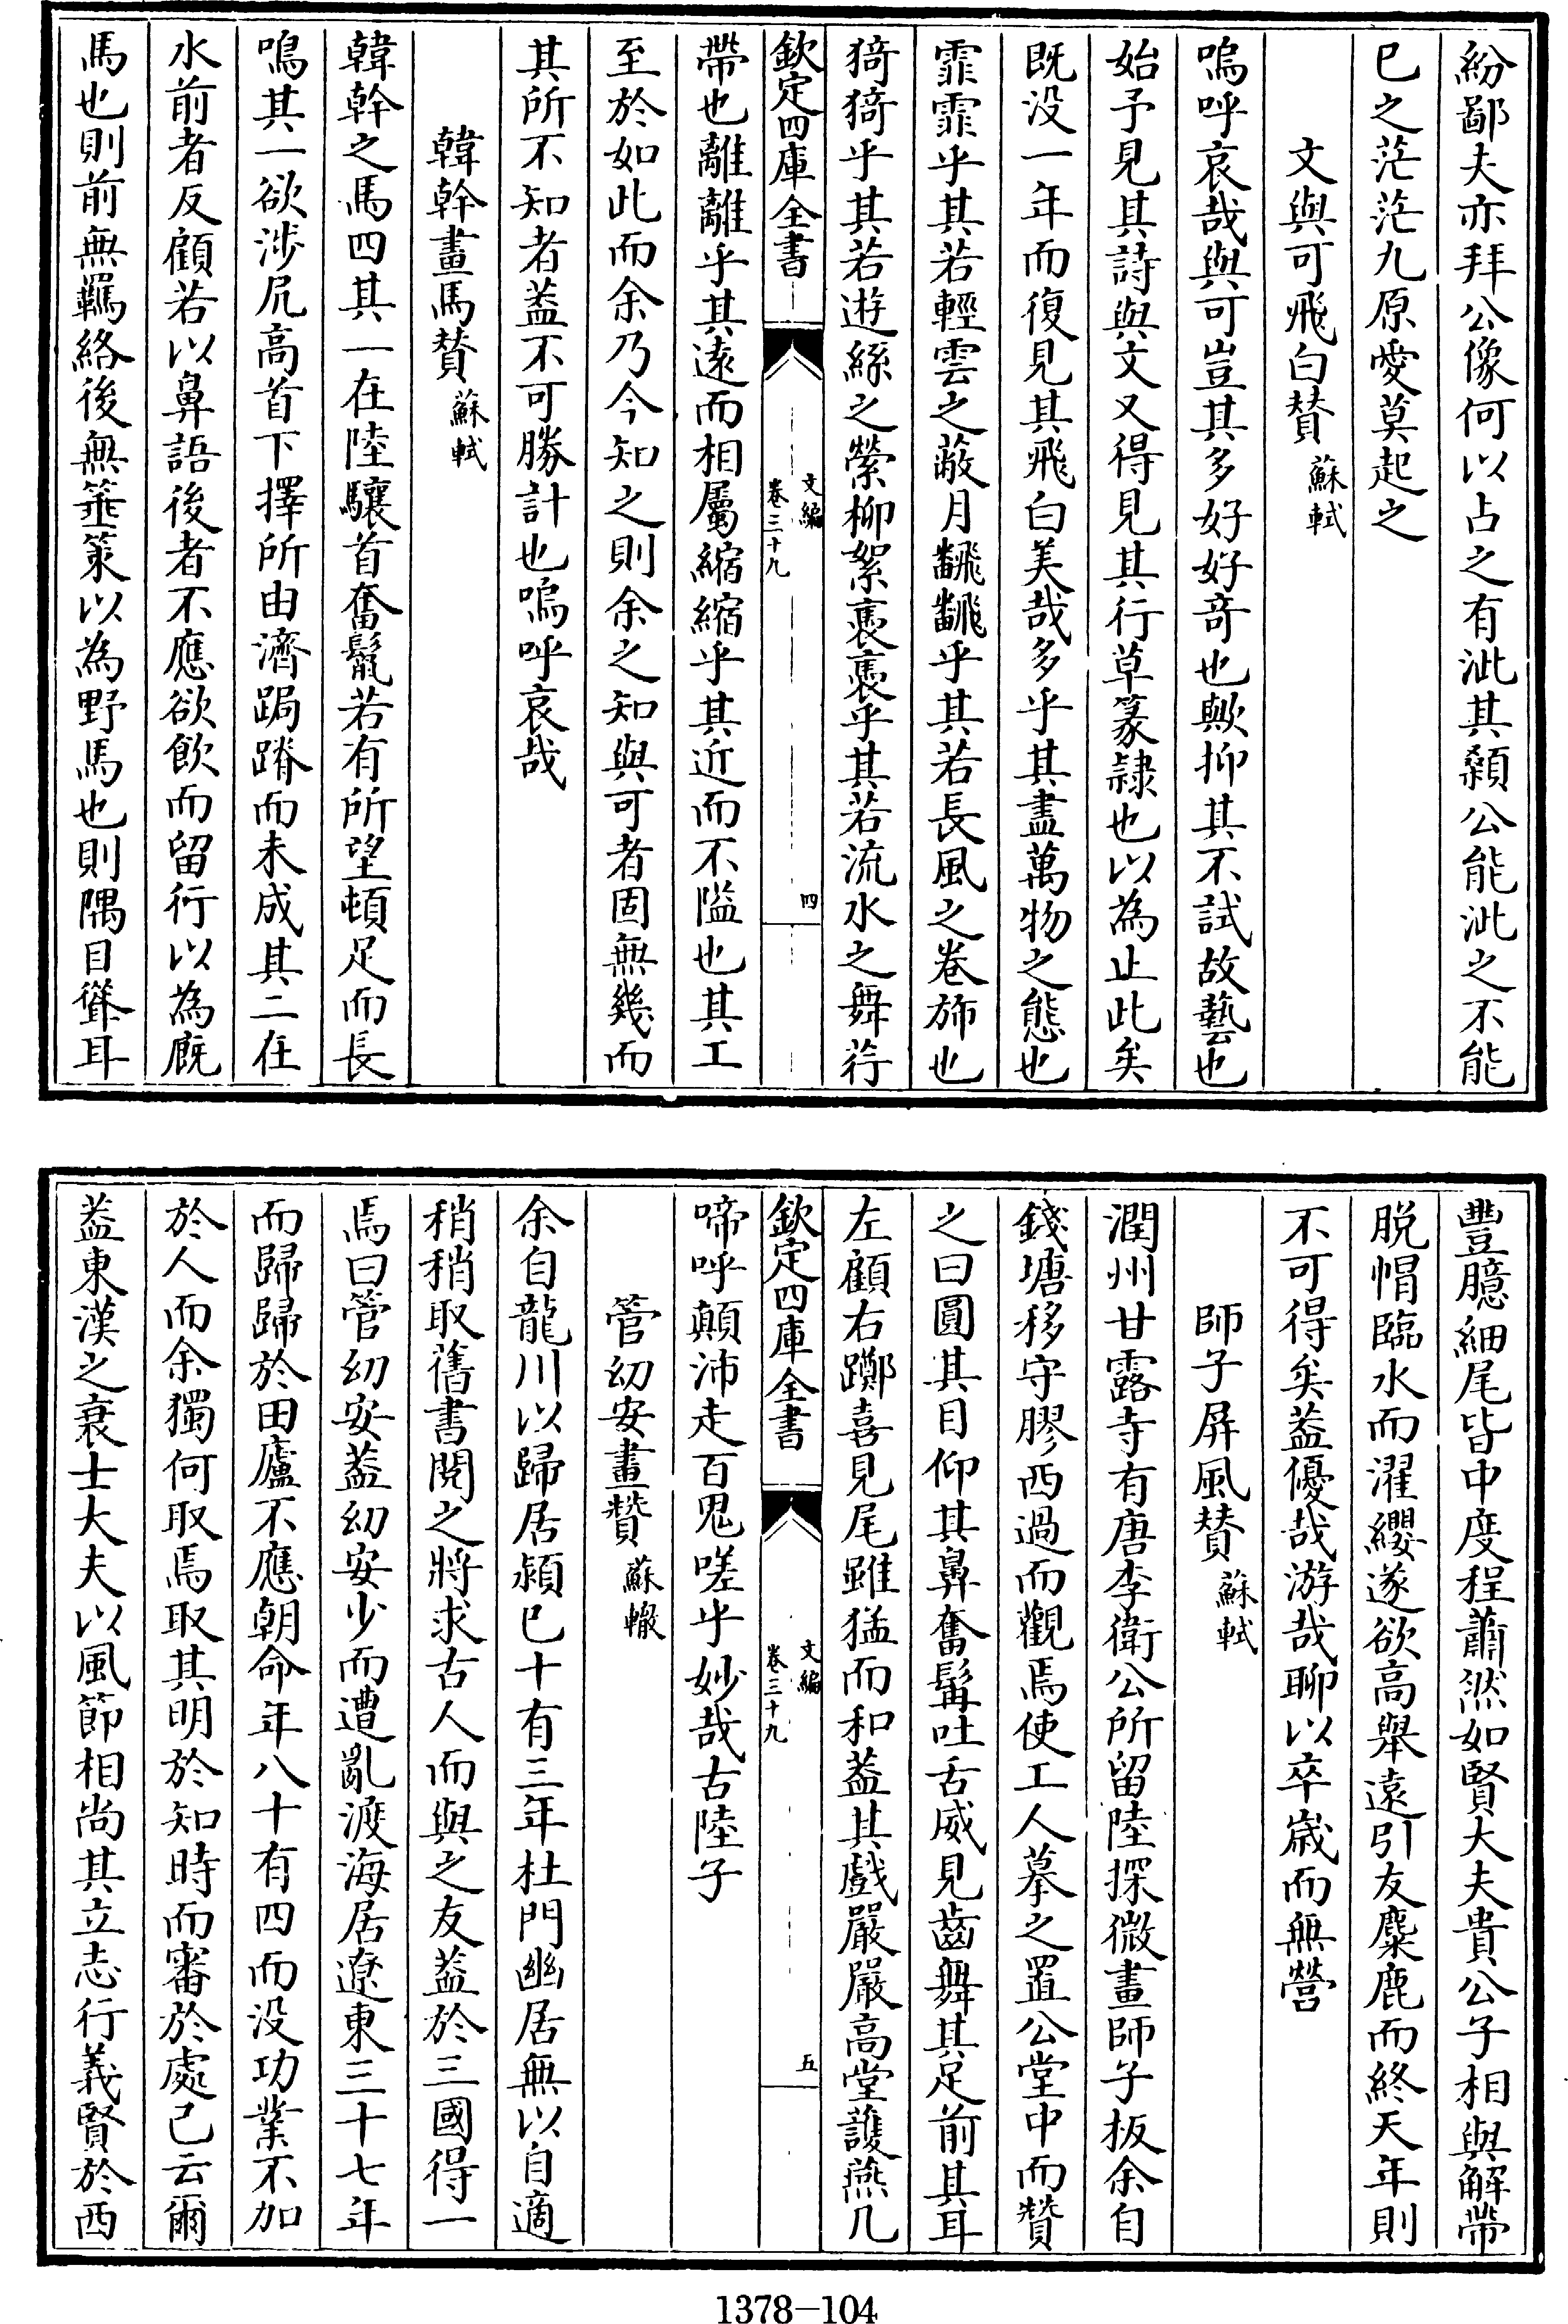 紛鄙夫亦拜公像何以占之有泚其顙公能泚之不能
已之茫茫九原愛莫起之
文與可飛白贊 蘇軾
嗚呼哀哉與可豈其多好好竒也歟抑其不試故藝也
始予見其詩與文又得見其行草篆隷也以為止此矣
既没一年而復見其飛白美哉多乎其盡萬物之態也
霏霏乎其若輕雲之蔽月飜飜乎其若長風之卷斾也
猗猗乎其若遊絲之縈柳絮裊裊乎其若流水之舞荇
欽定四庫全書 文編 卷三十九 四
帶也離離乎其逺而相屬縮縮乎其近而不隘也其工
至於如此而余乃今知之則余之知與可者固無幾而
其所不知者葢不可勝計也嗚呼哀哉
韓幹畫馬贊 蘇軾
韓幹之馬四其一在陸驤首奮鬛若有所望頓足而長
鳴其一欲涉尻高首下擇所由濟跼蹐而未成其二在
水前者反顧若以鼻語後者不應欲飲而留行以為廐
馬也則前無羈絡後無箠策以為野馬也則隅目聳耳
豐臆細尾皆中度程蕭然如賢大夫貴公子相與解帶
脱帽臨水而濯纓遂欲高舉遠引友麋鹿而終天年則
不可得矣葢優哉游哉聊以卒歲而無營
師子屏風贊 蘇軾
潤州甘露寺有唐李衛公所留陸探微畫師子板余自
錢塘移守膠西過而觀焉使工人摹之置公堂中而贊
之曰圓其目仰其鼻奮髯吐舌威見齒舞其足前其耳
左顧右躑喜見尾雖猛而和葢其戲嚴嚴高堂護燕几
欽定四庫全書 文編 卷三十九 五
啼呼顛沛走百鬼嗟乎妙哉古陸子
管幼安畫贊 蘇轍
余自龍川以歸居潁已十有三年杜門幽居無以自適
稍稍取舊書閱之將求古人而與之友葢於三國得一
焉曰管幼安葢幼安少而遭亂渡海居遼東三十七年
而歸歸於田廬不應朝命年八十有四而没功業不加
於人而余獨何取焉取其明於知時而審於處己云爾
葢東漢之衰士大夫以風節相尚其立志行義賢於西
1378－104